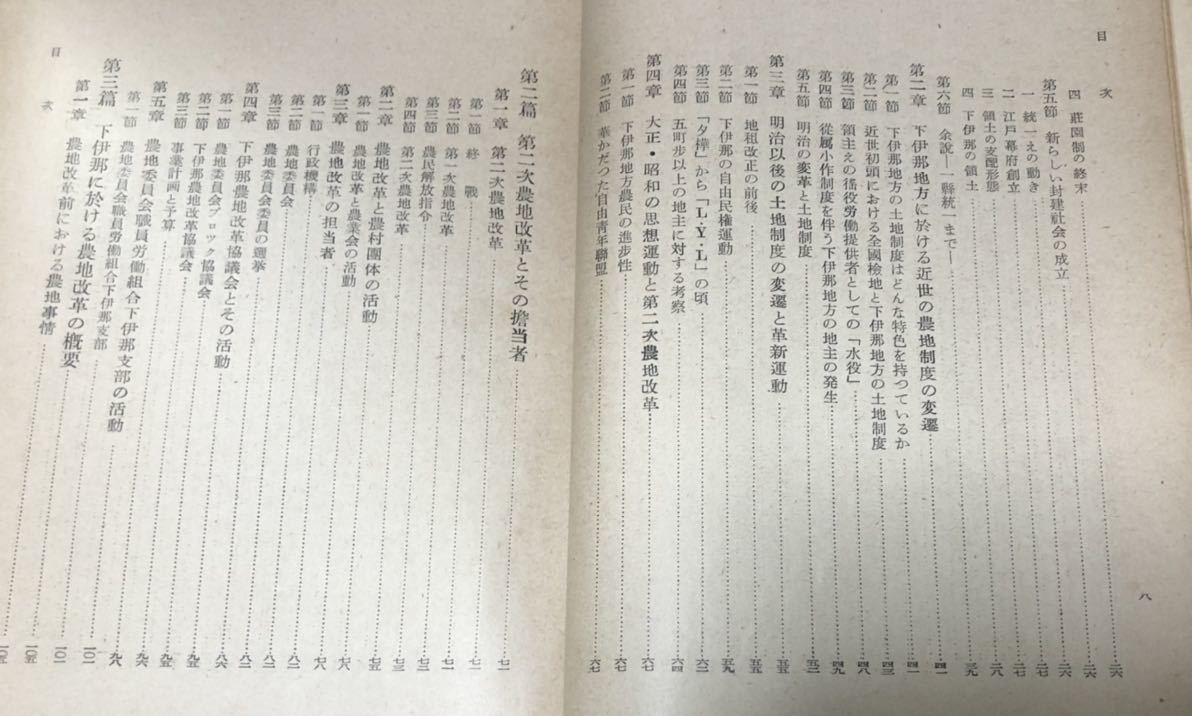 目次
八
四 莊園制の終末……三六
第五節 新らしい封建社会の成立……三六
一 統一えの動き……三六
二 江戸幕府創立……三七
三 領土の支配形態……三七
四 下伊那の領土……三八
第六節 余說―一縣統一まで―……三九
第二章 下伊那地方に於ける近世の農地制度の変遷……四一
第一節 下伊那地方の土地制度はどんな特色を持つているか……四一
第二節 近世初頭における全國檢地と下伊那地方の土地制度……四三
第三節 領主えの徭役労働提供者としての「水役」……四八
第四節 從属小作制度を伴う下伊那地方の地主の発生……四九
第五節 明治の変革と土地制度……五二
第三章 明治以後の土地制度の変遷と革新運動……五五
第一節 地租改正の前後……五五
第二節 下伊那の自由民権運動……五九
第三節 「夕樺」から「L・Y・L」の頃……六二
第四節 五町步以上の地主に対する考察……六四
第四章 大正・昭和の思想運動と第二次農地改革……六七
第一節 下伊那地方農民の進步性……六七
第二節 華かだつた自由青年聯盟……六七
第二篇 第二次農地改革とその擔当者
第一章 第二次農地改革……七一
第一節 終戰……七一
第二節 第一次農地改革……七一
第三節 農民解放指令……七二
第四節 第二次農地改革……七三
第二章 農地改革と農村團体の活動……七五
第一節 農地改革と農業会の活動
第三章 農地改革の担当者……七八
第一節 行政機構……七八
第二節 農地委員会……八二
第三節 農地委員会委員の選挙……八二
第四章 下伊那農地改革協議会とその活動
第一節 農地委員会ブロック協議会……八六
第二節 下伊那農地改革協議会……九五
第三節 事業計画と予算……九五
第五章 農地委員会職員労働組合下伊那支部の活動……九六
第一節 農地委員会職員労働組合下伊那支部……九八
第三篇 下伊那に於ける農地改革の槪要
第一章 農地改革前における農地事情……一〇五
目次